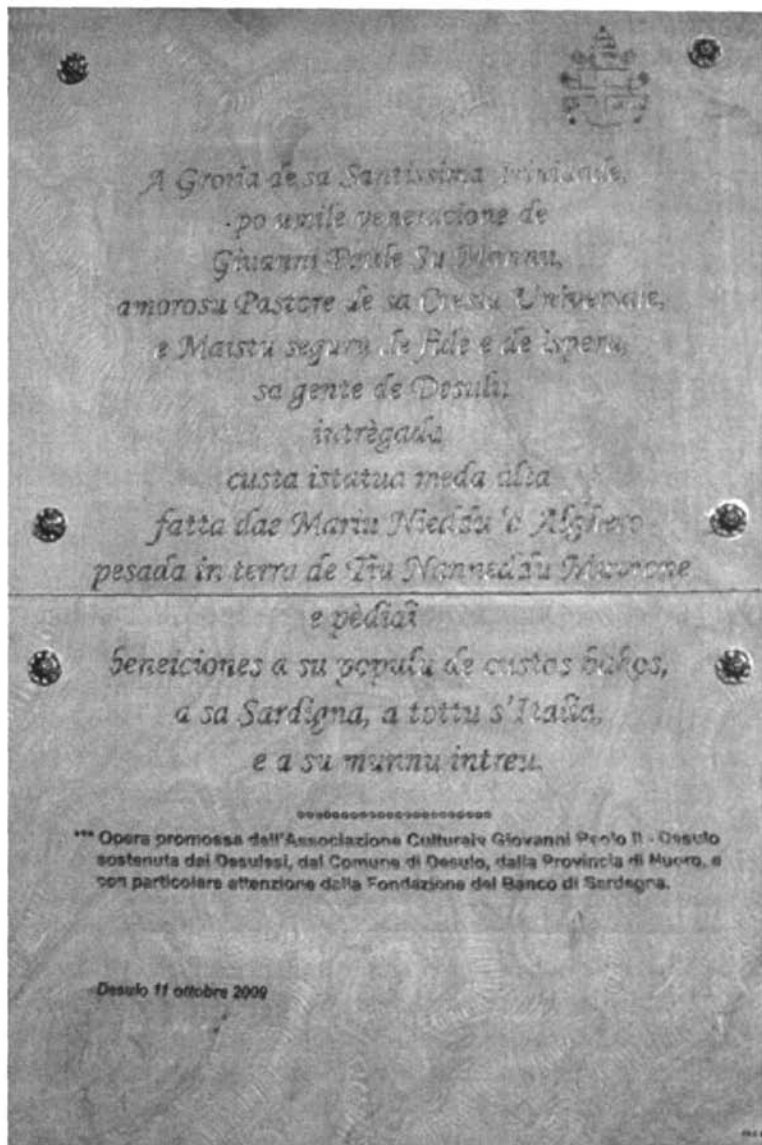 A Groria de sa Santissima Trinidade,
po umile veneracione de
Giuanni Paule Su Mannu,
amorosu Pastore de sa Cresia Universale,
e Maistu seguru de fide e de ispera,
sa gente de Desulu
intrègada
custa istatua meda alta
fatta dae Mariu Nieddu 'e Alghero
pesada in terra de Tiu Nanneddu
e pèdiat
beneiciones a su populu de custos
a sa Sardigna, a tottu s'Italia,
e a su munnu intreu.
*** Opera promossa dall'Associazione Culturale Giovanni Paolo II - Desulo
sostenuta dai Desulesi, dal Comune di Desulo, dalla Provincia di Nuoro, e
con particolare attenzione dalla Fondazione del Banco di Sardegna.
Desulo 11 ottobre 2009